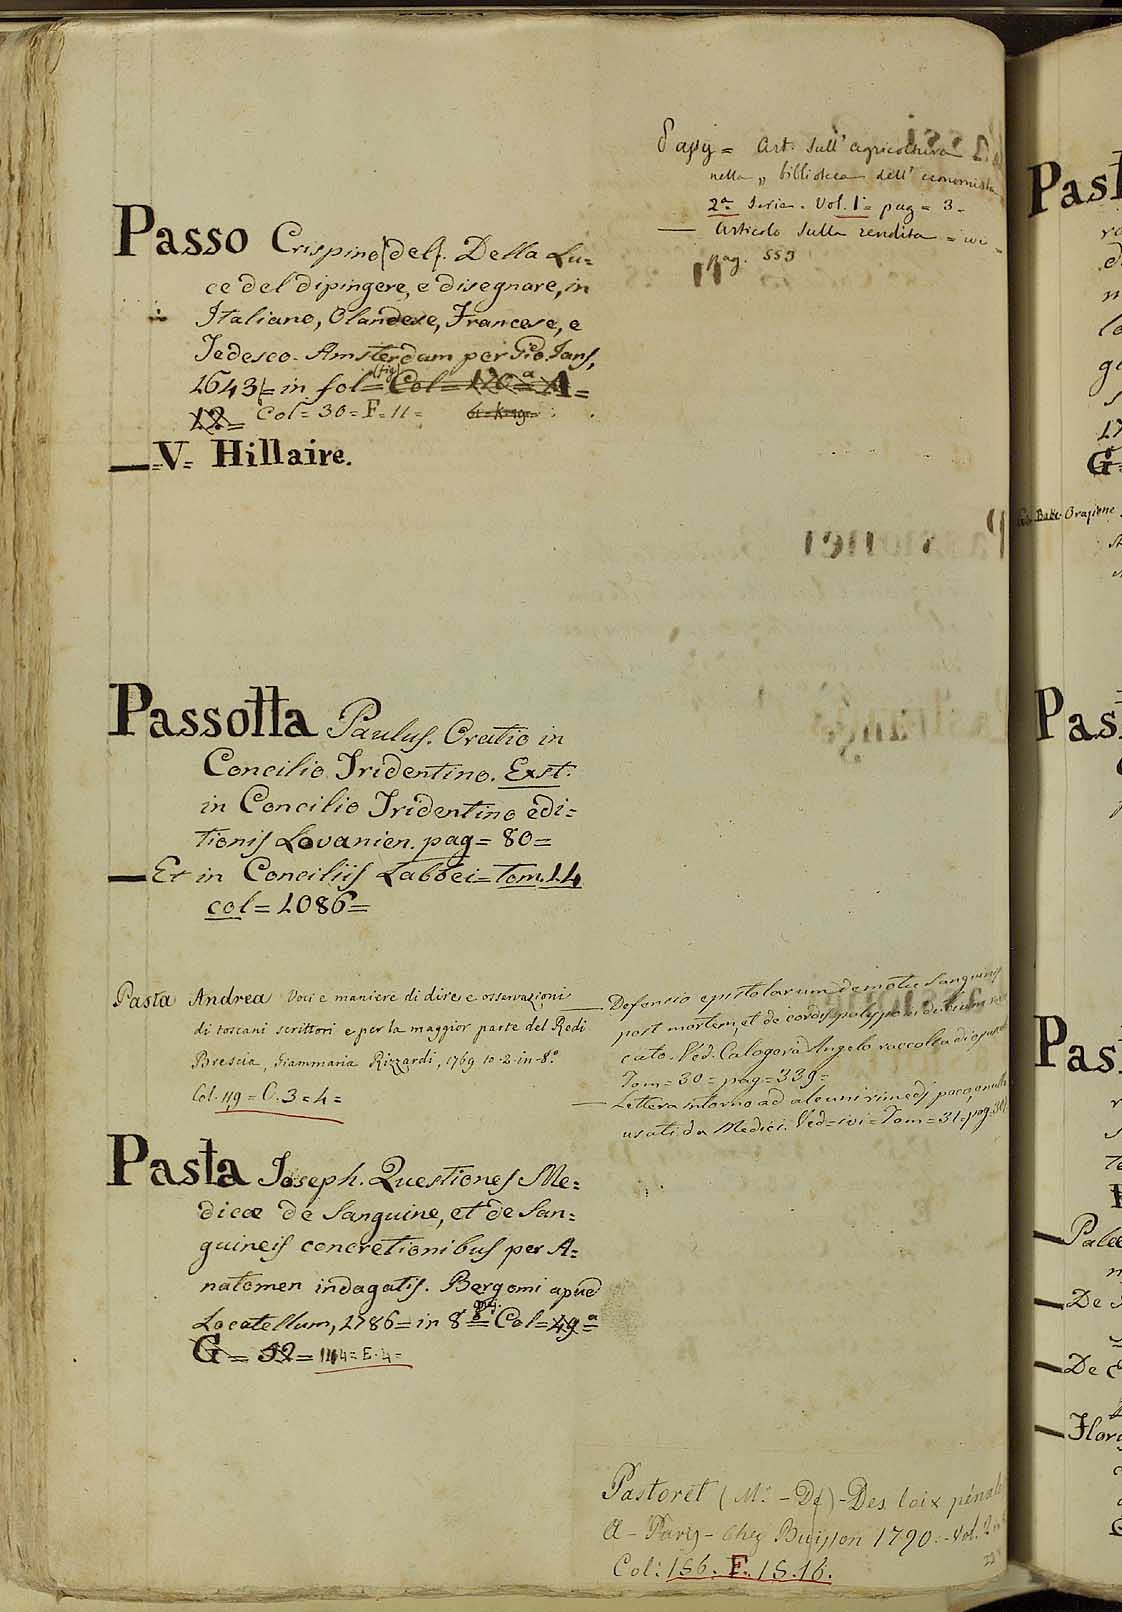 Passy = Art. sull' agricoltura
nella „ biblioteca dell' economista
2.ª Serie. Vol. 1.º = pag = 3 -
— Articolo sulla rendita = ivi -
pag. 559
Passo Crispino del. Della Lu=
ce del dipingere, e disegnare, in
Italiano, Olandese, Francese, e
Tedesco. Amsterdam per Gio. Jans,
1643 = in fol = (fig) Col = 120 = a A =
12 = Col = 30 = F = 11 =
— =V= Hillaire.
Passotta Paulus. Oratio in
Concilio Tridentino. Exst.
in Concilio Tridentino edi=
tionis Lovanien. pag = 80 =
— Et in Conciliis Labbei = tom. 14
col = 1086 =
Pasta Andrea Voci e maniere di dire e osservazioni
di toscani scrittori e per la maggior parte del Redi
Brescia, Giammaria Rizzardi, 1769 to. 2. in = 8.º
Col. 119 = C. 3 = 4 =
— Defensio epistolarum de motu sanguinis
post mortem, et de cordis polypo in dubium revo
cato. Ved. Calogerà Angelo raccolta di opuscoli
Tom = 30 = pag = 339 =
— Lettera intorno ad alcuni rimedj poco, o nulla
usati da Medici. Ved = ivi = Tom = 31 = pag:
Pasta Joseph. Questiones Me=
dicæ de Sanguine, et de San=
guineis concretionibus per A=
natomen indagatis. Bergomi apud
Locatellum, 1786 = in 8º Col = 49 = a
G = 52 = 144 = E. 4 =
Pastoret (M.r - De) - Des loix pénales
A - Paris - Chez Buisson 1790 : - Vol. 2
Col: 156. F. 15. 16.
Past
G =
Batt. Orazione
Past
Past
— Palæ
— De
— De
— Flor